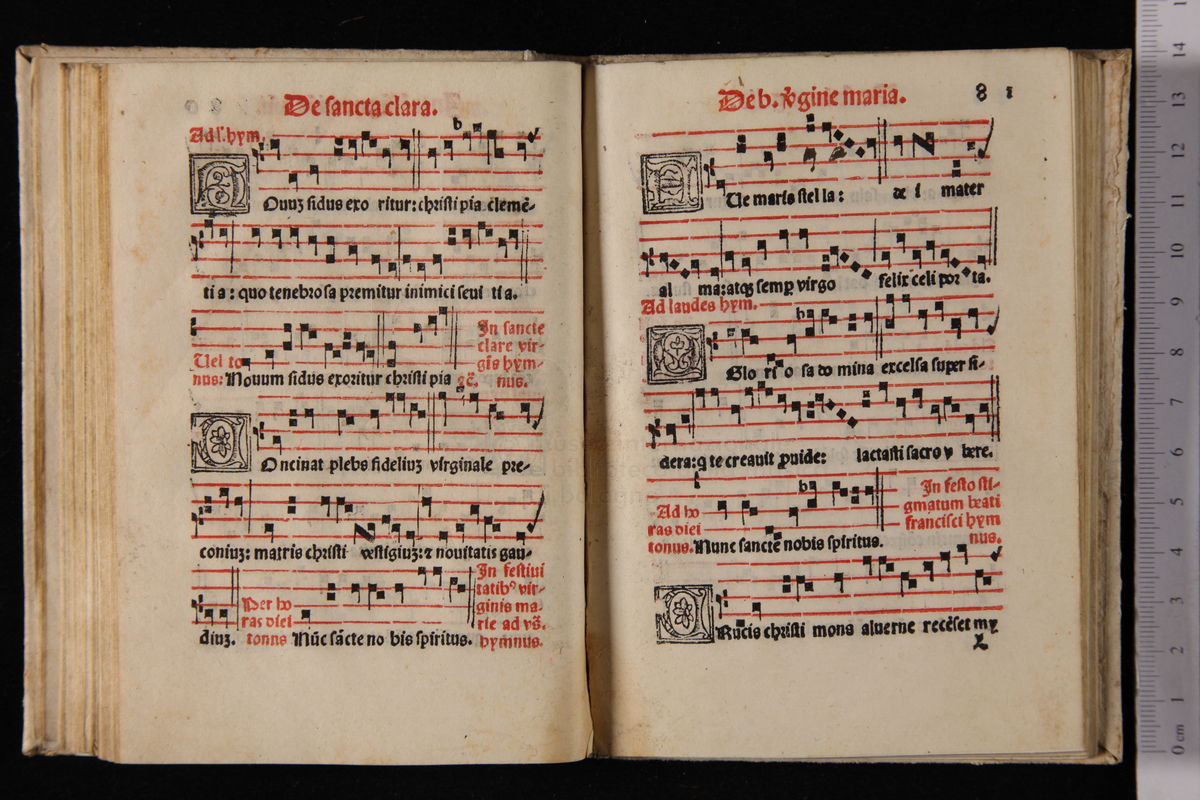 De sancta clara.
Ad l. hym.
Ouuʒ sidus exo ritur: christi pia clemē-
ti a: quo tenebrosa premitur inimici seui ti a.
Uel to
nus: Nouum sidus exoritur christi pia ꝛc̄.
In sancte
clare vir-
gīs hym-
nus.
Concinat plebs fideliuʒ virginale pre-
coniuʒ: matris christi vestigiuʒ: ⁊ nouitatis gau-
diuʒ.
Per ho
ras diei
tonus Nūc sācte no bis spiritus.
In festiui
tatibꝰ vir-
ginis ma-
rie ad vs̄.
hymnus.
De b. v̓gine maria.
81
Aue maris stel la: de i mater
al ma: atqʒ semꝑ virgo felix celi por ta.
Ad laudes hym.
O Glo ri o sa do mina excelsa super si-
dera: q te creauit ꝓuide: lactasti sacro v bere.
Ad ho
ras diei
tonus. Nunc sancte nobis spiritus.
In festo sti-
gmatum beati
francisci hym
nus.
CRucis christi mons aluerne recēset my
L